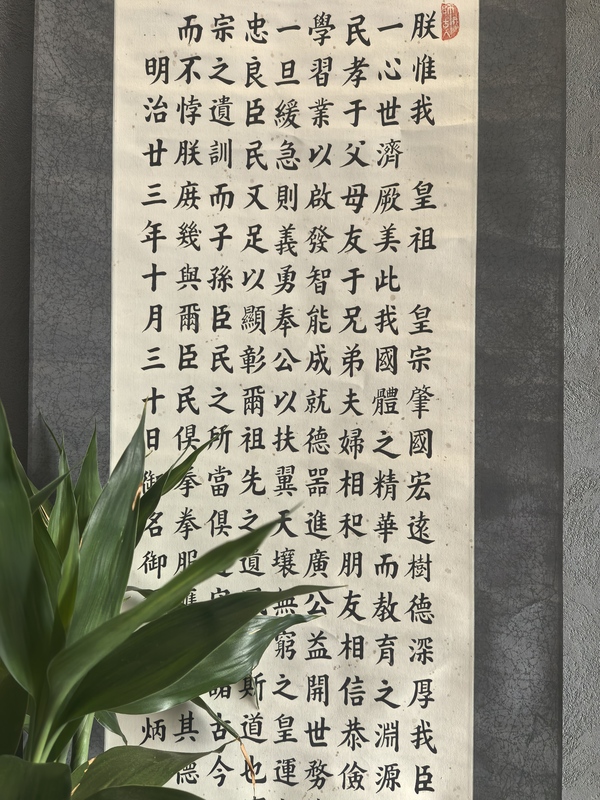 朕惟我 皇祖 皇宗肇國宏遠樹德深厚我臣
一心世濟厥美此我國體之精華而教育之淵源
民孝于父母友于兄弟夫婦相和朋友相信恭儉
學習業以啟發智能成就德器進廣公益開世務
一旦緩急則義勇奉公以扶翼天壤無窮之皇運
忠良臣民又足以顯彰爾祖先之遺斯道也
宗之遺訓而子孫臣民之所當俱諸古今
而不悖朕庶幾與爾臣民俱拳拳服膺其德
明治廿三年十月三十日御名御 炳